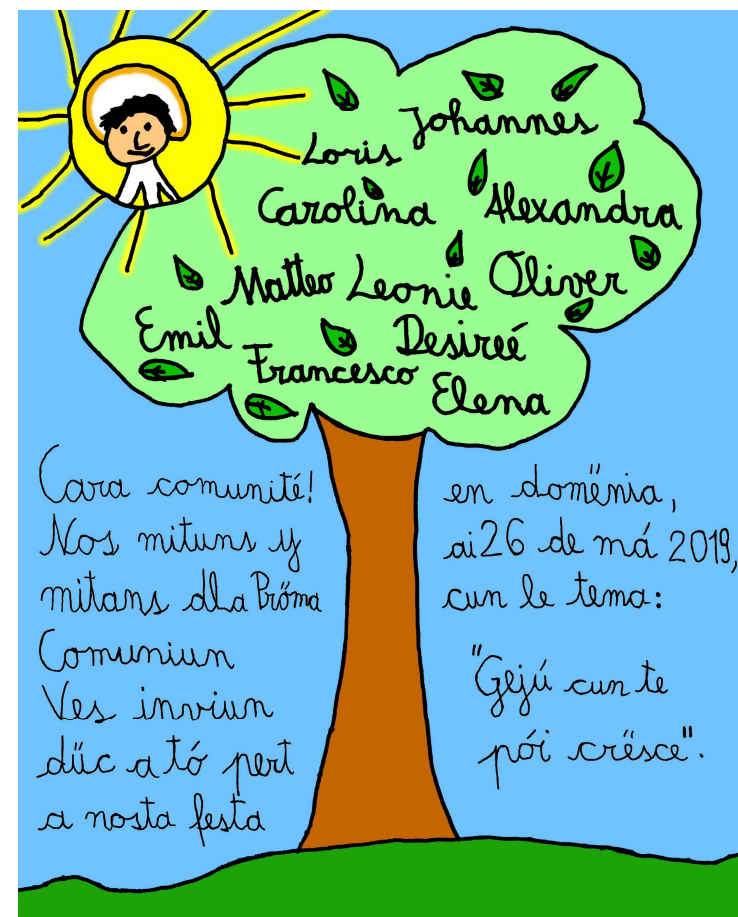 Johannes
Loris
Carolina Alexandra
Matteo Leonie Oliver
Emil Desireé
Francesco Elena
Cara comunité!
Nos mituns y
mitans dla Pröma
Comuniun
Ves inviun
düc a tó pert
a nosta festa
en domënia,
ai 26 de má 2019,
cun le tema:
"Gejú cun te
pói crësce".